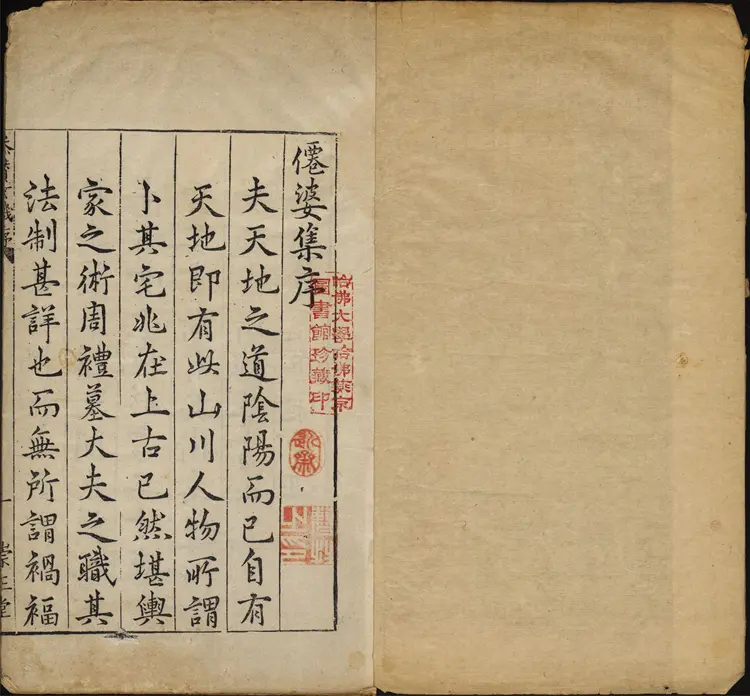 僊婆集序
夫天地之道陰陽而已自有
天地即有此山川人物所謂
卜其宅兆在上古已然堪輿
家之術周禮墓大夫之職其
法制甚詳也而無所謂禍福
哈佛大學哈佛燕京
圖書館珍藏印
一
崇正堂